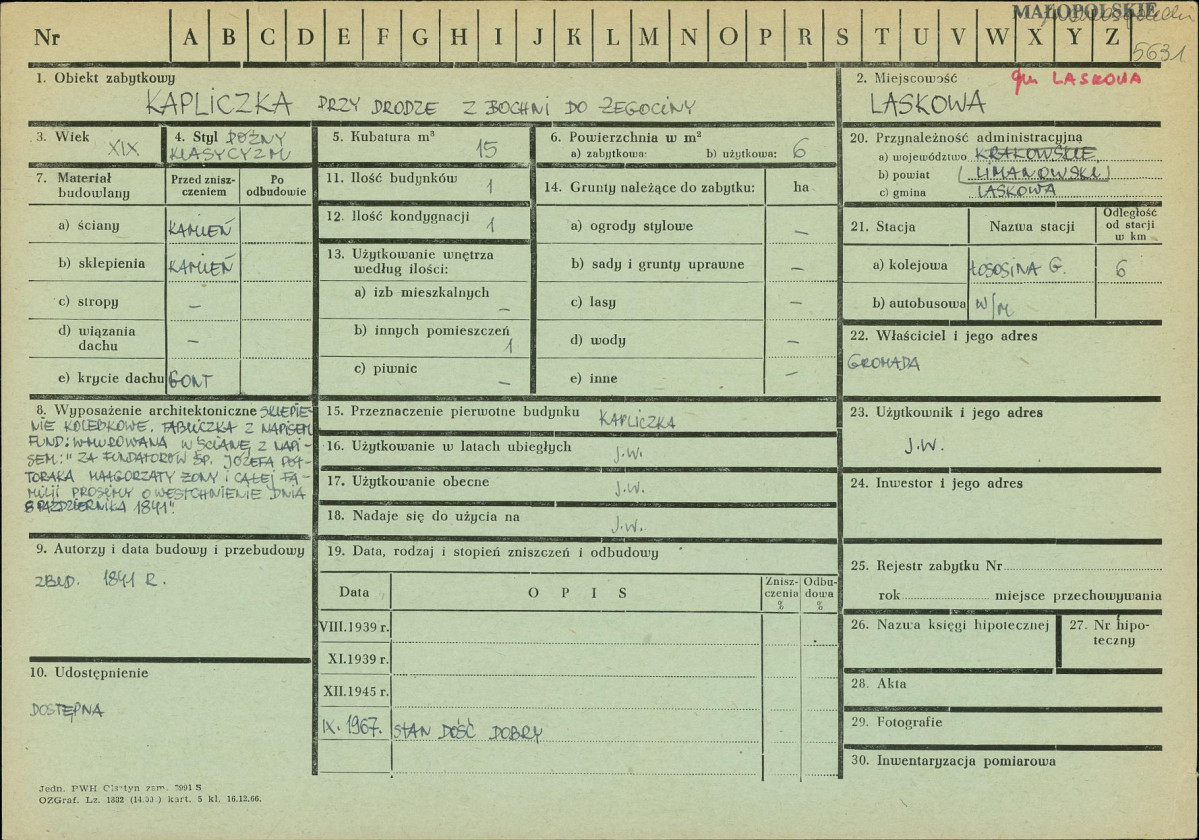 MAŁOPOLSKIE
5631
Nr A B C D E F G H I J K L M N O P R S T U V W X Y Z
1. Obiekt zabytkowy
KAPLICZKA PRZY DRODZE Z BOCHNI DO ŻEGOCINY
2. Miejscowość gm LASKOWA
LASKOWA
3. Wiek
XIX
4. Styl PÓŹNY
KLASYCYZM
5. Kubatura m³
15
6. Powierzchnia w m²
a) zabytkowa: b) użytkowa: 6
7. Materiał budowlany
Przed zniszczeniem
Po odbudowie
a) ściany KAMIEŃ
b) sklepienia KAMIEŃ
c) stropy –
d) wiązania dachu –
e) krycie dachu GONT
8. Wyposażenie architektoniczne SKLEPIE-
NIE KOLEBKOWE. TABLICZKA Z NAPISEM
FUND: WMUROWANA W ŚCIANĘ Z NAPI-
SEM: "ZA FUNDATORÓW ŚP. JÓZEFA PÓŁ-
TORAKA MAŁGORZATY ŻONY I CAŁEJ FA-
MILII PROSIMY O WESTCHNIENIE DNIA
8 PAŹDZIERNIKA 1841".
9. Autorzy i data budowy i przebudowy
ZBUD. 1841 R.
10. Udostępnienie
DOSTĘPNA
11. Ilość budynków 1
12. Ilość kondygnacji 1
13. Użytkowanie wnętrza
według ilości:
a) izb mieszkalnych –
b) innych pomieszczeń 1
c) piwnic –
14. Grunty należące do zabytku: ha
a) ogrody stylowe –
b) sady i grunty uprawne –
c) lasy –
d) wody –
e) inne –
15. Przeznaczenie pierwotne budynku KAPLICZKA
16. Użytkowanie w latach ubiegłych J.W.
17. Użytkowanie obecne J.W.
18. Nadaje się do użycia na J.W.
19. Data, rodzaj i stopień zniszczeń i odbudowy
Data OPIS Znisz-
czenia
% Odbu-
dowa
%
VIII.1939 r.
XI.1939 r.
XII.1945 r.
IX. 1967. STAN DOŚĆ DOBRY
20. Przynależność administracyjna
a) województwo KRAKOWSKIE
b) powiat (LIMANOWSKI)
c) gmina LASKOWA
21. Stacja Nazwa stacji Odległość
od stacji
w km
a) kolejowa ŁOSOSINA G. 6
b) autobusowa W/M
22. Właściciel i jego adres
GROMADA
23. Użytkownik i jego adres
J.W.
24. Inwestor i jego adres
25. Rejestr zabytku Nr
rok miejsce przechowywania
26. Nazwa księgi hipotecznej
27. Nr hipo-
teczny
28. Akta
29. Fotografie
30. Inwentaryzacja pomiarowa
Jedn. PWH Olsztyn zam. 2991 S
OZGraf. Lz. 1832 (14.50) kart. 5 kl. 16.12.66.